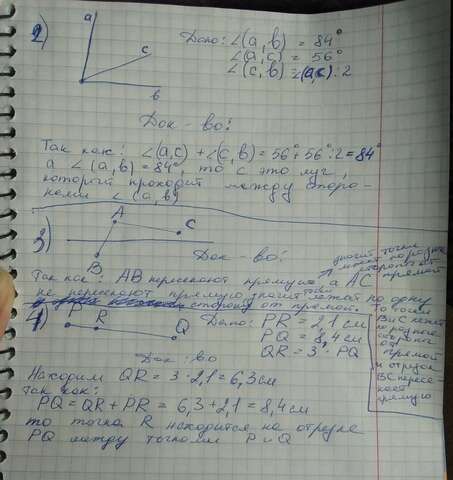 2)
a
c
b
Дано: ∠(a, b) = 84°
∠(a, c) = 56°
∠(c, b) = ∠(a,c) : 2
Док - во:
Так как: ∠(a,c) + ∠(c, b) = 56° + 56° : 2 = 84°
а ∠(a, b) = 84°, то c это луч,
который проходит между сторо-
нами ∠(a, b)
3)
A
C
B
Док - во:
Так как: AB пересекают прямую, а AC
не пересекают прямую, значит лежат по одну
сторону от прямой.
значит точки
прямой
То точки
B и C лежат
по разные
стороны
от
прямой
и отрезок
BC пересе-
кает
прямую
4)
P
R
Q
Дано: PR = 2,1 см
PQ = 8,4 см
QR = 3 · PQ
Док - во
Находим QR = 3 · 2,1 = 6,3 см
Так как:
PQ = QR + PR = 6,3 + 2,1 = 8,4 см
то точка R находится на отрезке
PQ между точками P и Q